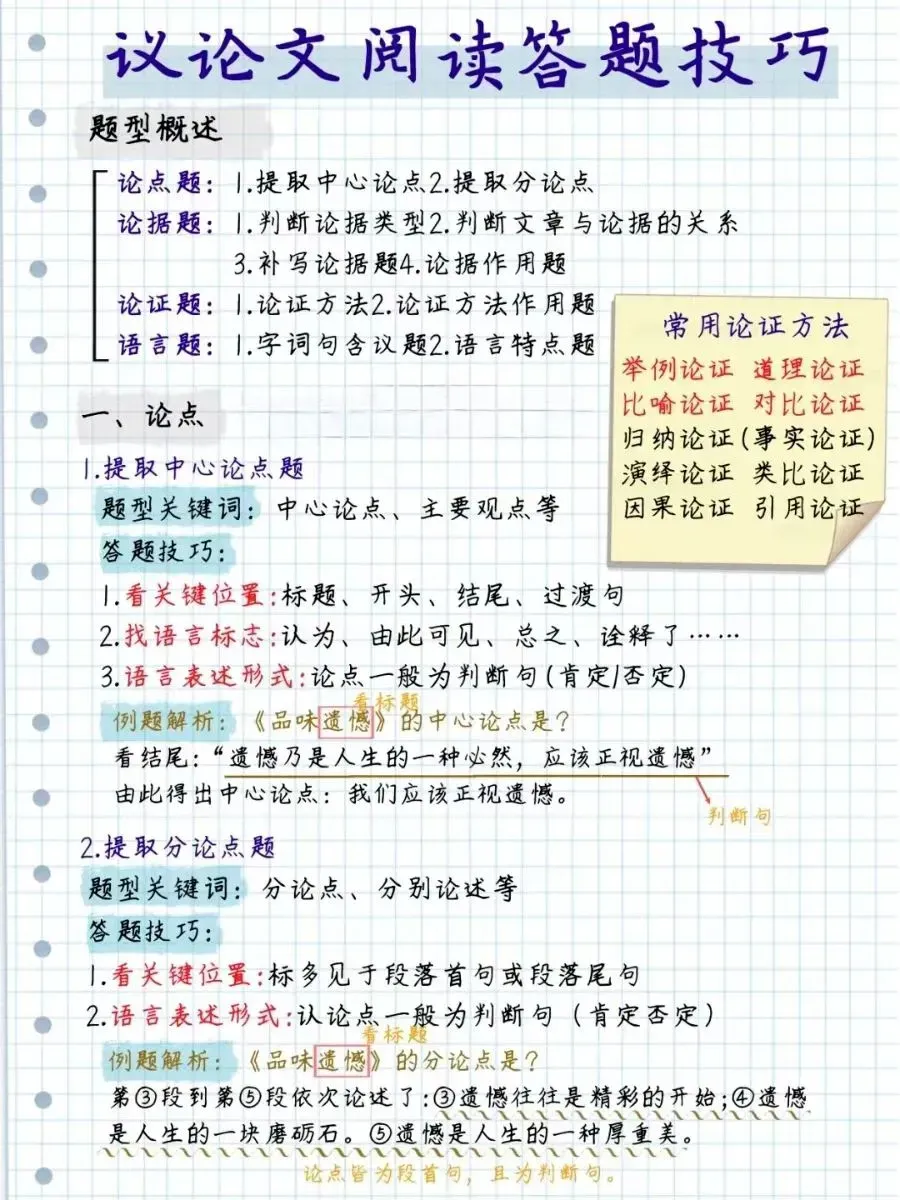 议论文阅读答题技巧
题型概述
论点题：1.提取中心论点2.提取分论点
论据题：1.判断论据类型2.判断文章与论据的关系
3.补写论据题4.论据作用题
论证题：1.论证方法2.论证方法作用题
语言题：1.字词句含议题2.语言特点题
常用论证方法
举例论证 道理论证
比喻论证 对比论证
归纳论证(事实论证)
演绎论证 类比论证
因果论证 引用论证
一、论点
1.提取中心论点题
题型关键词：中心论点、主要观点等
答题技巧：
1.看关键位置:标题、开头、结尾、过渡句
2.找语言标志:认为、由此可见、总之、诠释了……
3.语言表述形式:论点一般为判断句(肯定/否定)
看标题
例题解析：《品味遗憾》的中心论点是？
看结尾：“遗憾乃是人生的一种必然，应该正视遗憾”
由此得出中心论点：我们应该正视遗憾。
判断句
2.提取分论点题
题型关键词：分论点、分别论述等
答题技巧：
1.看关键位置:标多见于段落首句或段落尾句
2.语言表述形式:认论点一般为判断句（肯定否定）
看标题
例题解析：《品味遗憾》的分论点是？
第③段到第⑤段依次论述了:③遗憾往往是精彩的开始;④遗憾
是人生的一块磨砺石。⑤遗憾是人生的一种厚重美。
论点皆为段首句，且为判断句。